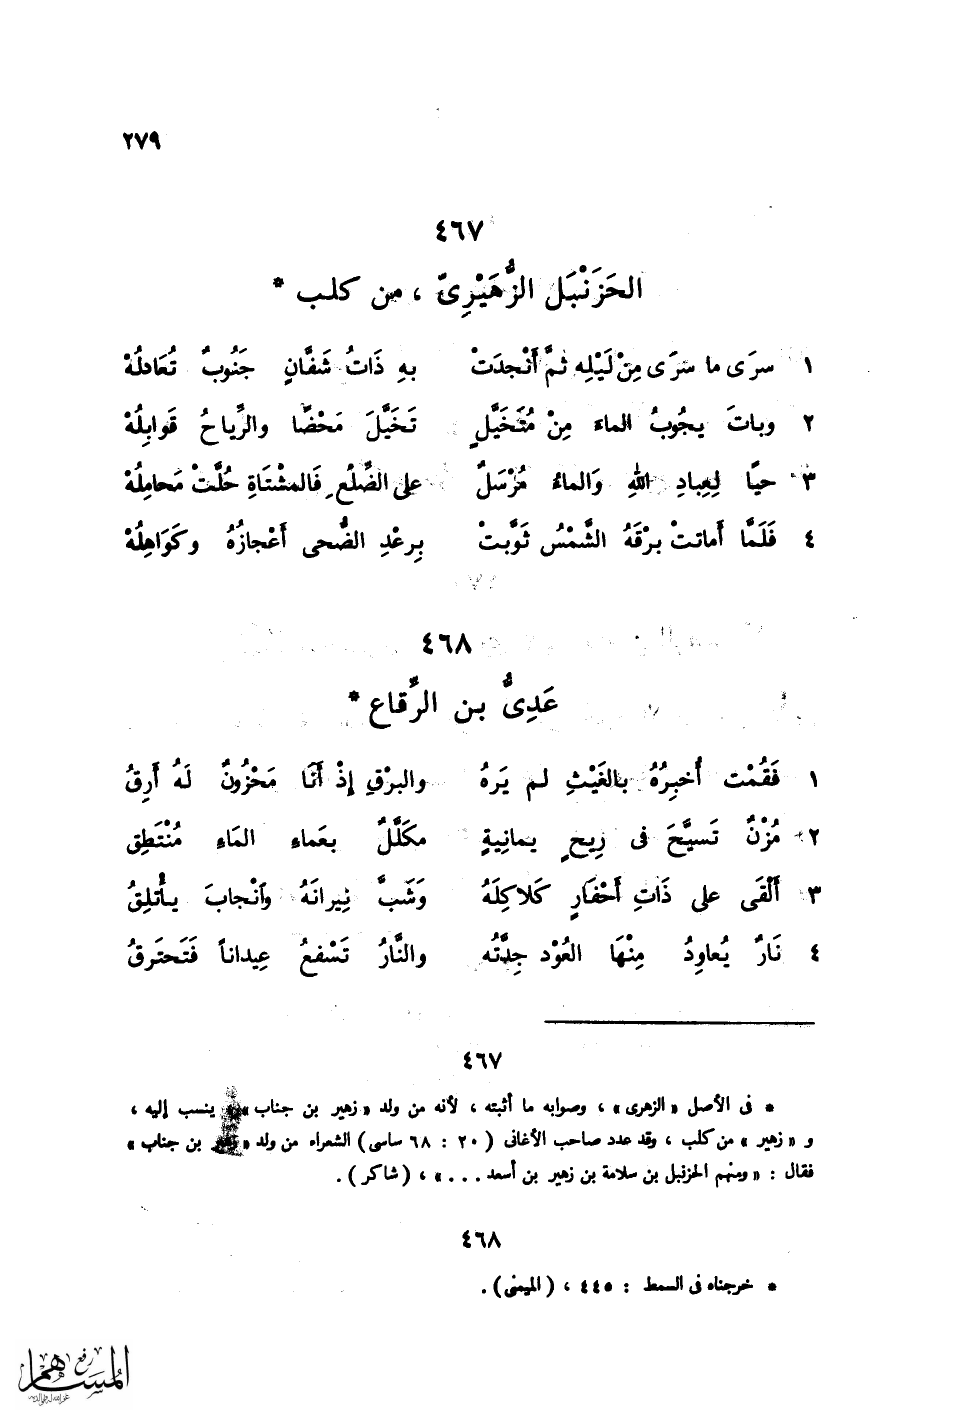 ٢٧٩
٤٦٧
الحَزَنْبَل الزُّهَيْرِىّ ، من كلب *
١ سرَى ما سَرَى مِنْ لَيْلِهِ ثمَّ أَنْجدَتْ بهِ ذَاتُ شَفَّانٍ جَنُوبٌ تُعَادلُهْ
٢ وباتَ يجُوبُ الماءَ مِنْ مُتَخَيَّلٍ تَخَيَّلَ مَحْضًا والرِّياحُ قَوابِلُهْ
٣ حيًا لِعِبادِ اللهِ وَالماءُ مُرْسَلٌ على الضِّلْعِ فَالمشْتَاةِ حُلَّتْ مَحامِلُهْ
٤ فَلَمَّا أَماتتْ برْقَهُ الشَّمْسُ ثَوَّبتْ بِرعْدِ الضُّحى أَعْجازُهُ وكَوَاهِلُهْ
٤٦٨
عَدِىُّ بن الرِّقاع *
١ فَقُمْت أُخبِرُهُ بالغَيْثِ لم يَرهُ والبرْقِ إِذْ أَنَا مَحْزُونٌ لَهُ أَرِقُ
٢ مُزْنٌ تَسيَّحَ فى رِيحٍ يمانِيةٍ مكَلَّلٌ بعَماءِ المَاءِ مُنْتَطِق
٣ أَلْقَى على ذَاتِ أَحْفَارٍ كَلاكِلَهُ وَشَبَّ نِيرانَهُ وأَنْجابَ يأْتلِقُ
٤ نَارٌ يُعاوِدُ مِنْهَا العُوْد جِدَّتُه والنَّارُ تَسْفعُ عِيداناً فَتَحتَرقُ
٤٦٧
* فى الأصل « الزهرى » ، وصوابه ما أثبته ، لأنه من ولد « زهير بن جناب » ينسب إليه ،
و « زهير » من كلب ، وقد عدد صاحب الأغانى ( ٢٠ : ٦٨ ساسى ) الشعراء من ولد « زهير بن جناب »
فقال : « ومنهم الحزنبل بن سلامة بن زهير بن أسعد . . . » ، ( شاكر ) .
٤٦٨
* خرجناه فى السمط : ٤٤٥ ، ( الميمنى ) .
رفع
المساهم